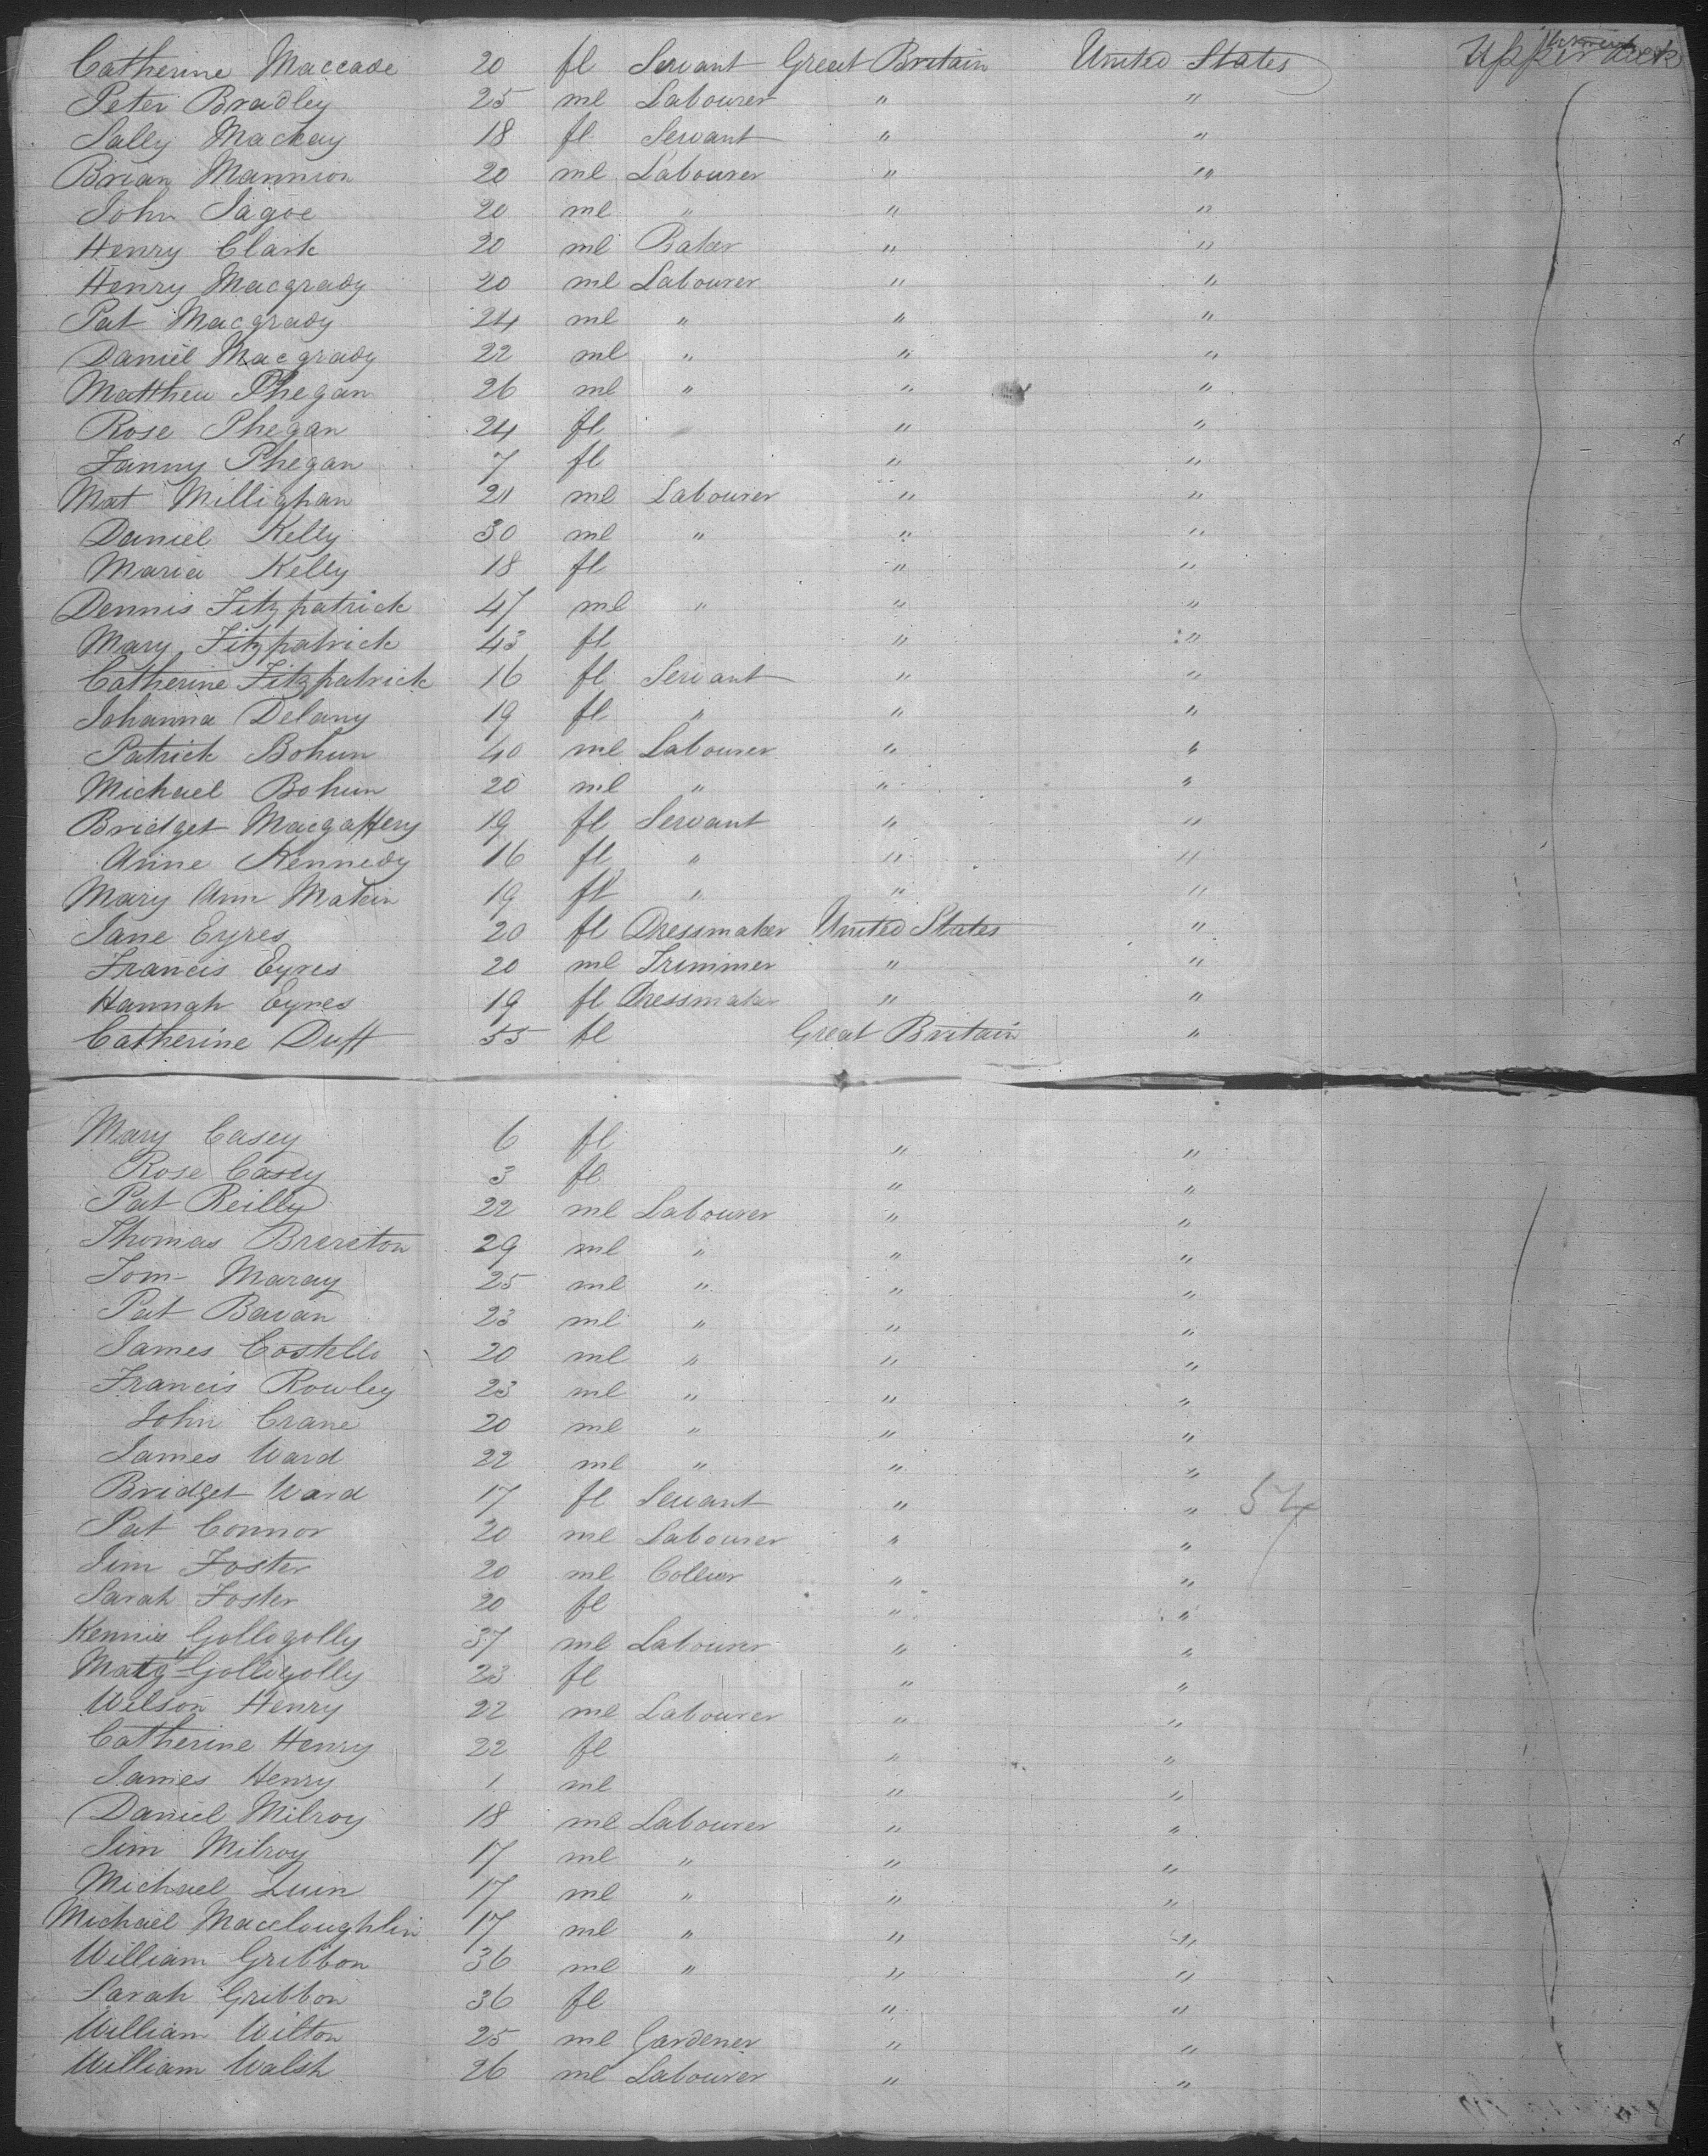 Catherine Maccade 20 fl Servant Great Britain United States Upper deck
Peter Bradley 25 ml Labourer " "
Sally Mackay 18 fl Servant " "
Brian Mannion 20 ml Labourer " "
John Jagoe 20 ml " " "
Henry Clark 20 ml Baker " "
Henry Macgrady 20 ml Labourer " "
Pat Macgrady 24 ml " " "
Daniel Macgrady 22 ml " " "
Matthew Phegan 26 ml " " "
Rose Phegan 24 fl " "
Fanny Phegan 7 fl " "
Mat Millighan 21 ml Labourer " "
Daniel Kelly 30 ml " " "
Maria Kelly 18 fl " "
Dennis Fitzpatrick 47 ml " " "
Mary Fitzpatrick 43 fl " "
Catherine Fitzpatrick 16 fl Servant " "
Johanna Delany 19 fl " " "
Patrick Bohun 40 ml Labourer " "
Michael Bohun 20 ml " " "
Bridget Macgaffery 19 fl Servant " "
Anne Kennedy 16 fl " " "
Mary Ann 19 fl " " "
Jane Eyres 20 fl Dressmaker United States "
Francis Eyres 20 ml Trimmer " "
Hannah Eyres 19 fl Dressmaker " "
Catherine Duff 55 fl Great Britain "
Mary Casey 6 fl " "
Rose Casey 3 fl " "
Pat Reilly 22 ml Labourer " "
Thomas Brereton 29 ml " " "
Tom Maray 25 ml " " "
Pat Bavan 23 ml " " "
James Costello 20 ml " " "
Francis Rowley 23 ml " " "
John Crane 20 ml " " "
James Ward 22 ml " " "
Bridget Ward 17 fl Servant " " 54
Pat Connor 20 ml Labourer " "
Jim Foster 20 ml Collier " "
Sarah Foster 20 fl " "
Kennie Gollogolly 37 ml Labourer " "
Mary Gollogolly 23 fl " "
Wilson Henry 22 ml Labourer " "
Catherine Henry 22 fl " "
James Henry 1 ml " "
Daniel Milroy 18 ml Labourer " "
Jim Milroy 17 ml " " "
Michael Luin 17 ml " " "
Michael Maccloughlin 17 ml " " "
William Gribbon 36 ml " " "
Sarah Gribbon 36 fl " "
William Wilton 25 ml Gardener " "
William Walsh 26 ml Labourer " "